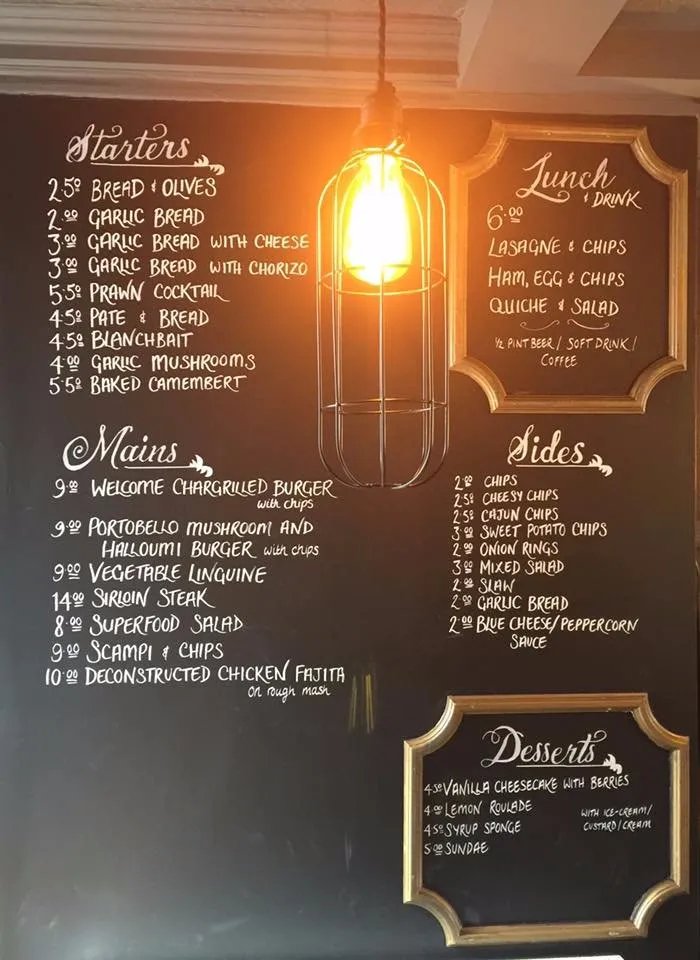 Starters
2.50 BREAD & OLIVES
2.00 GARLIC BREAD
3.00 GARLIC BREAD WITH CHEESE
3.00 GARLIC BREAD WITH CHORIZO
5.50 PRAWN COCKTAIL
4.50 PATE & BREAD
4.50 BLANCHBAIT
4.00 GARLIC MUSHROOMS
5.50 BAKED CAMEMBERT
Mains
9.00 WELCOME CHARGRILLED BURGER
with chips
9.00 PORTOBELLO MUSHROOM AND
HALLOUMI BURGER with chips
9.00 VEGETABLE LINGUINE
14.00 SIRLOIN STEAK
8.00 SUPERFOOD SALAD
9.00 SCAMPI & CHIPS
10.00 DECONSTRUCTED CHICKEN FAJITA
on rough mash
Lunch
& DRINK
6.00
LASAGNE & CHIPS
HAM, EGG & CHIPS
QUICHE & SALAD
1/2 PINT BEER / SOFT DRINK /
COFFEE
Sides
2.00 CHIPS
2.50 CHEESY CHIPS
2.50 CAJUN CHIPS
3.00 SWEET POTATO CHIPS
2.00 ONION RINGS
3.00 MIXED SALAD
2.00 SLAW
2.00 GARLIC BREAD
2.00 BLUE CHEESE/PEPPERCORN
SAUCE
Desserts
4.50 VANILLA CHEESECAKE WITH BERRIES
4.00 LEMON ROULADE
4.50 SYRUP SPONGE
5.00 SUNDAE
WITH ICE-CREAM/
CUSTARD/CREAM